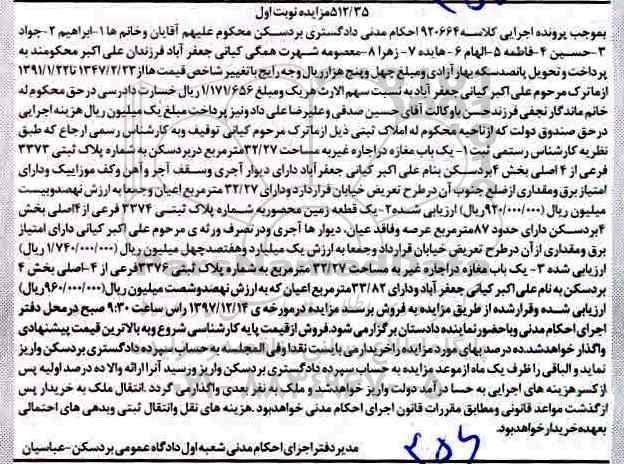 ۵۱۲/۳۵مزایده نوبت اول
بموجب پرونده اجرایی کلاسه ۹۲۰۶۶۴ احکام مدنی دادگستری بردسکن محکوم علیهم آقایان وخانم ها ۱-ابراهیم ۲-جواد
۳-حسین ۴-فاطمه ۵-الهام ۶-هایده ۷-زهرا ۸-معصومه شهرت همگی کیانی جعفر آباد فرزندان علی اکبر محکومند به
پرداخت وتحویل پانصدسکه بهار آزادی ومبلغ چهل وپنج هزارریال وجه رایج باتغییر شاخص قیمت هااز ۱۳۴۷/۲/۲۳تا ۱۳۹۱/۱/۲۲
ازماترک مرحوم علی اکبر کیانی جعفر آباد به نسبت سهم الارث هریک ومبلغ ۱/۱۷۱/۶۵۶ ریال خسارت دادرسی درحق محکوم له
خانم ماندگار نجفی فرزندحسن باوکالت آقای حسین صدقی وعلیرضا علی دادونیز پرداخت مبلغ یک میلیون ریال هزینه اجرایی
درحق صندوق دولت که ازناحیه محکوم له املاک ثبتی ذیل ازماترک مرحوم کیانی توقیف وبه کارشناس رسمی ارجاع که طبق
نظریه کارشناس رستمی ثبت ۱- یک باب مغازه دراجاره غیربه مساحت ۳۲/۲۷مترمربع دربردسکن به شماره پلاک ثبتی ۳۳۷۳
فرعی از ۴ اصلی بخش ۴بردسکن بنام علی اکبر کیانی جعفر آباد دارای دیوار آجری وسقف آجر وآهن وکف موزاییک ودارای
امتیاز برق ومقداری ازضلع جنوب آن درطرح تعریض خیابان قراردارد ودارای ۳۲/۲۷ مترمربع اعیان وجمعا به ارزش نهصدوبیست
میلیون ریال (۹۲۰/۰۰۰/۰۰۰ریال) ارزیابی شده ۲-یک قطعه زمین محصوربه شماره پلاک ثبتی ۳۳۷۴ فرعی از ۴اصلی بخش
۴بردسکن دارای حدود ۸۷مترمربع عرصه وفاقد عیان، دیوار ها آجری ودرتصرف ورثه ی مرحوم علی اکبر کیانی دارای امتیاز
برق ومقداری از آن درطرح تعریض خیابان قرارداد وجمعا به ارزش یک میلیارد وهفتصدچهل میلیون ریال (۱/۷۴۰/۰۰۰/۰۰۰ ریال)
ارزیابی شده ۳- یک باب مغازه دراجاره غیر به مساحت ۳۲/۲۷ مترمربع به شماره پلاک ثبتی ۳۳۷۶فرعی از ۴-اصلی بخش ۴
بردسکن به نام علی اکبر کیانی جعفر آباد ودارای ۳۳/۸۲مترمربع اعیان که به ارزش نهصدوشصت میلیون ریال(۹۶۰/۰۰۰/۰۰۰ریال)
ارزیابی شده وقرارشده از طریق مزایده به فروش برسد مزایده درمورخه ی ۱۳۹۷/۱۲/۱۴ راس ساعت ۹:۳۰ صبح درمحل دفتر
اجرای احکام مدنی وباحضورنماینده دادستان برگزارمی شود.فروش ازقیمت پایه کارشناسی شروع وبه بالاترین قیمت پیشنهادی
واگذار خواهدشد.ده درصدبهای مورد مزایده راخریدارمی بایست نقدا وفی المجلسه به حساب سپرده دادگستری بردسکن واریز
نماید والباقی را ظرف یک ماه ازموعد مزایده به حساب سپرده دادگستری بردسکن واریز ورسید آنرا ارائه والا ده درصد اولیه پس
از کسرهزینه های اجرایی به حسا درآمد دولت واریز خواهدشد و ملک به نفر بعدی واگذارمی گردد. انتقال ملک به خریدار پس
ازگذشت مواعد قانونی ومطابق مقررات قانون اجرای احکام مدنی خواهدبود.هزینه های نقل وانتقال ثبتی وبدهی های احتمالی
بعهده خریدارخواهدبود.
مدیردفتراجرای احکام مدنی شعبه اول دادگاه عمومی بردسکن-عباسیان